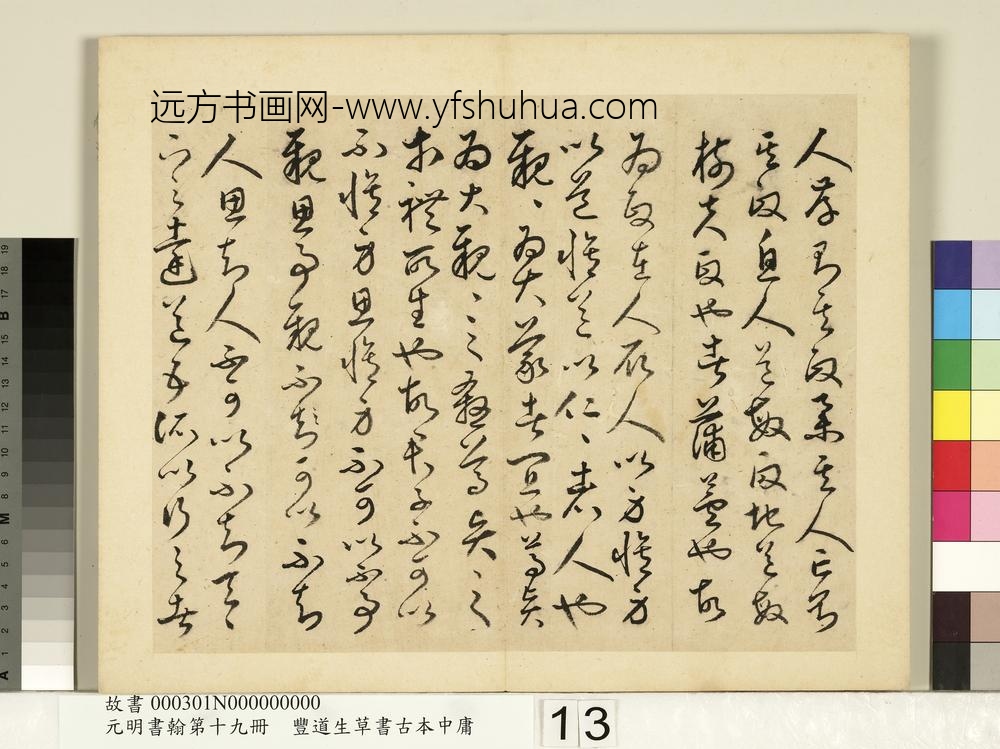 远方书画网-www.yfshuhua.com
人存則其政舉其人亡則
其政息人道敏政地道敏
樹夫政也者蒲蘆也故
為政在人取人以身修身
以道修道以仁、者人也
親、為大義者宜也尊賢
為大親、之殺尊賢之
等禮所生也故君子不可以
不修身思修身不可以不事
親思事親不可以不知
人思知人不可以不知天、
下之達道五所以行之者
故書 000301N000000000
元明書翰第十九冊 豐道生草書古本中庸
13